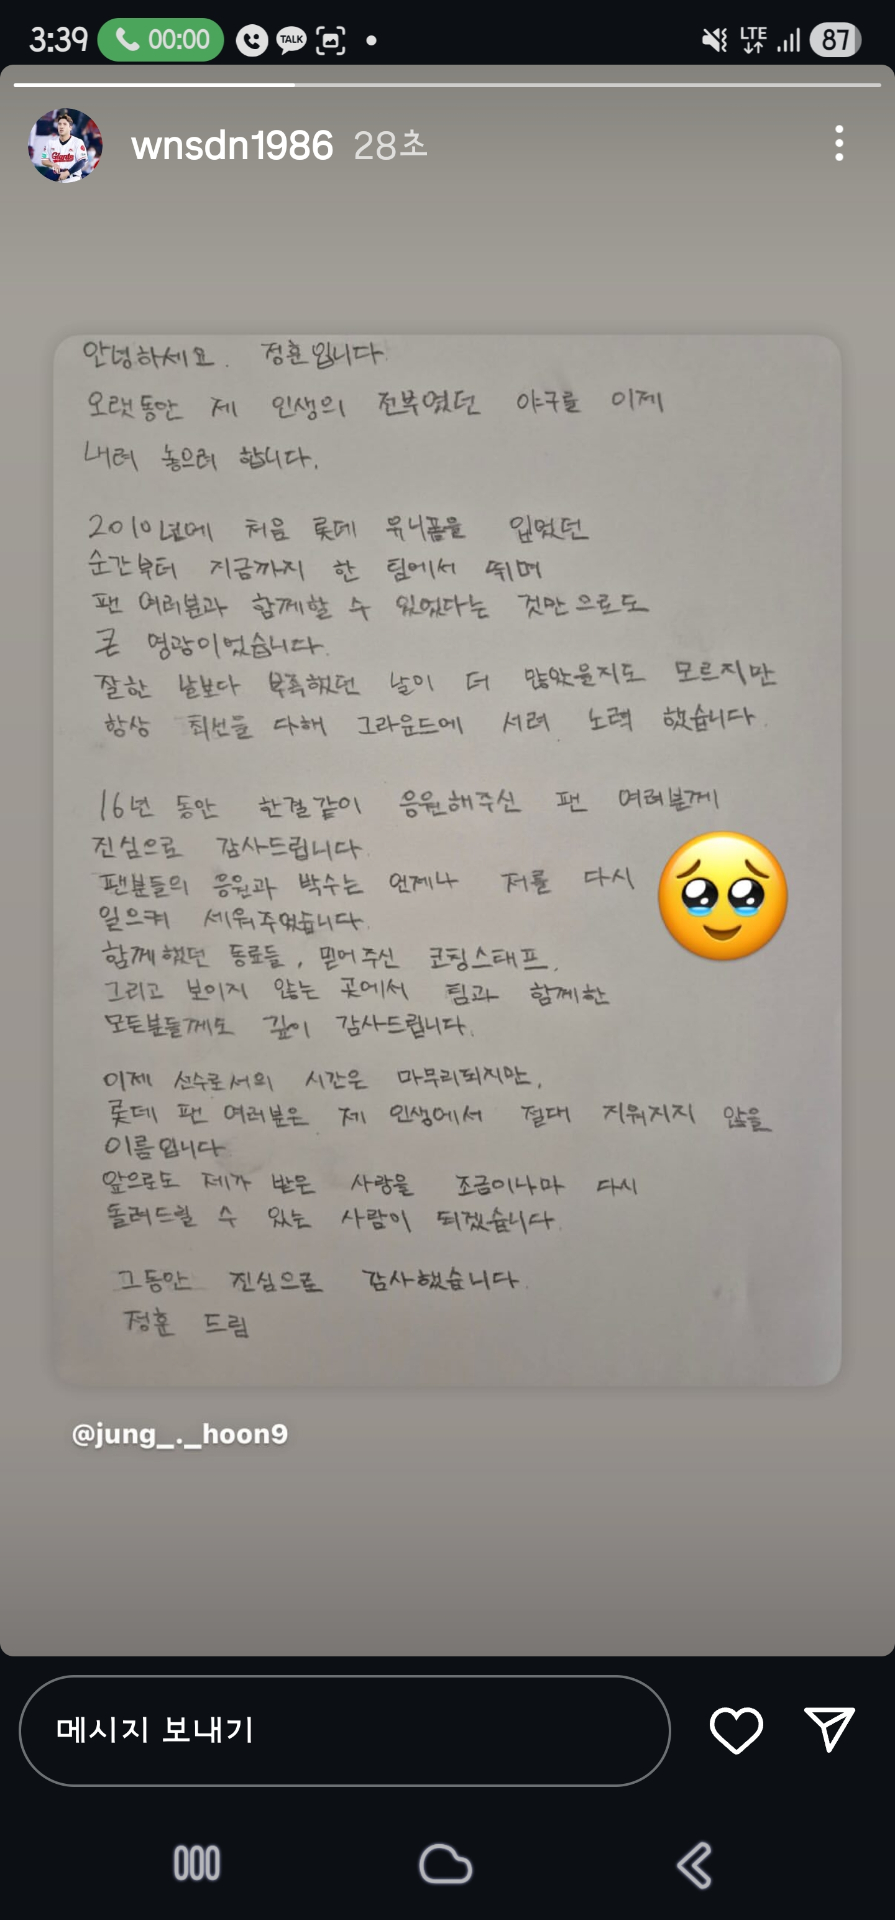 3:39 00:00 TALK LTE 87
wnsdn1986 28초
안녕하세요. 정훈입니다.
오랫동안 제 인생의 전부였던 야구를 이제
내려 놓으려 합니다.
2010년에 처음 롯데 유니폼을 입었던
순간부터 지금까지 한 팀에서 뛰며
팬 여러분과 함께할 수 있었다는 것만으로도
큰 영광이었습니다.
잘한 날보다 부족했던 날이 더 많았을지도 모르지만
항상 최선을 다해 그라운드에 서려 노력 했습니다.
16년 동안 한결같이 응원해주신 팬 여러분께
진심으로 감사드립니다.
팬분들의 응원과 박수는 언제나 저를 다시
일으켜 세워주었습니다.
함께했던 동료들, 믿어주신 코칭스태프,
그리고 보이지 않는 곳에서 팀과 함께한
모든분들께도 깊이 감사드립니다.
이제 선수로서의 시간은 마무리되지만,
롯데 팬 여러분은 제 인생에서 절대 지워지지 않을
이름입니다
앞으로도 제가 받은 사랑을 조금이나마 다시
돌려드릴 수 있는 사람이 되겠습니다.
그동안 진심으로 감사했습니다.
정훈 드림
@jung_._hoon9
메시지 보내기